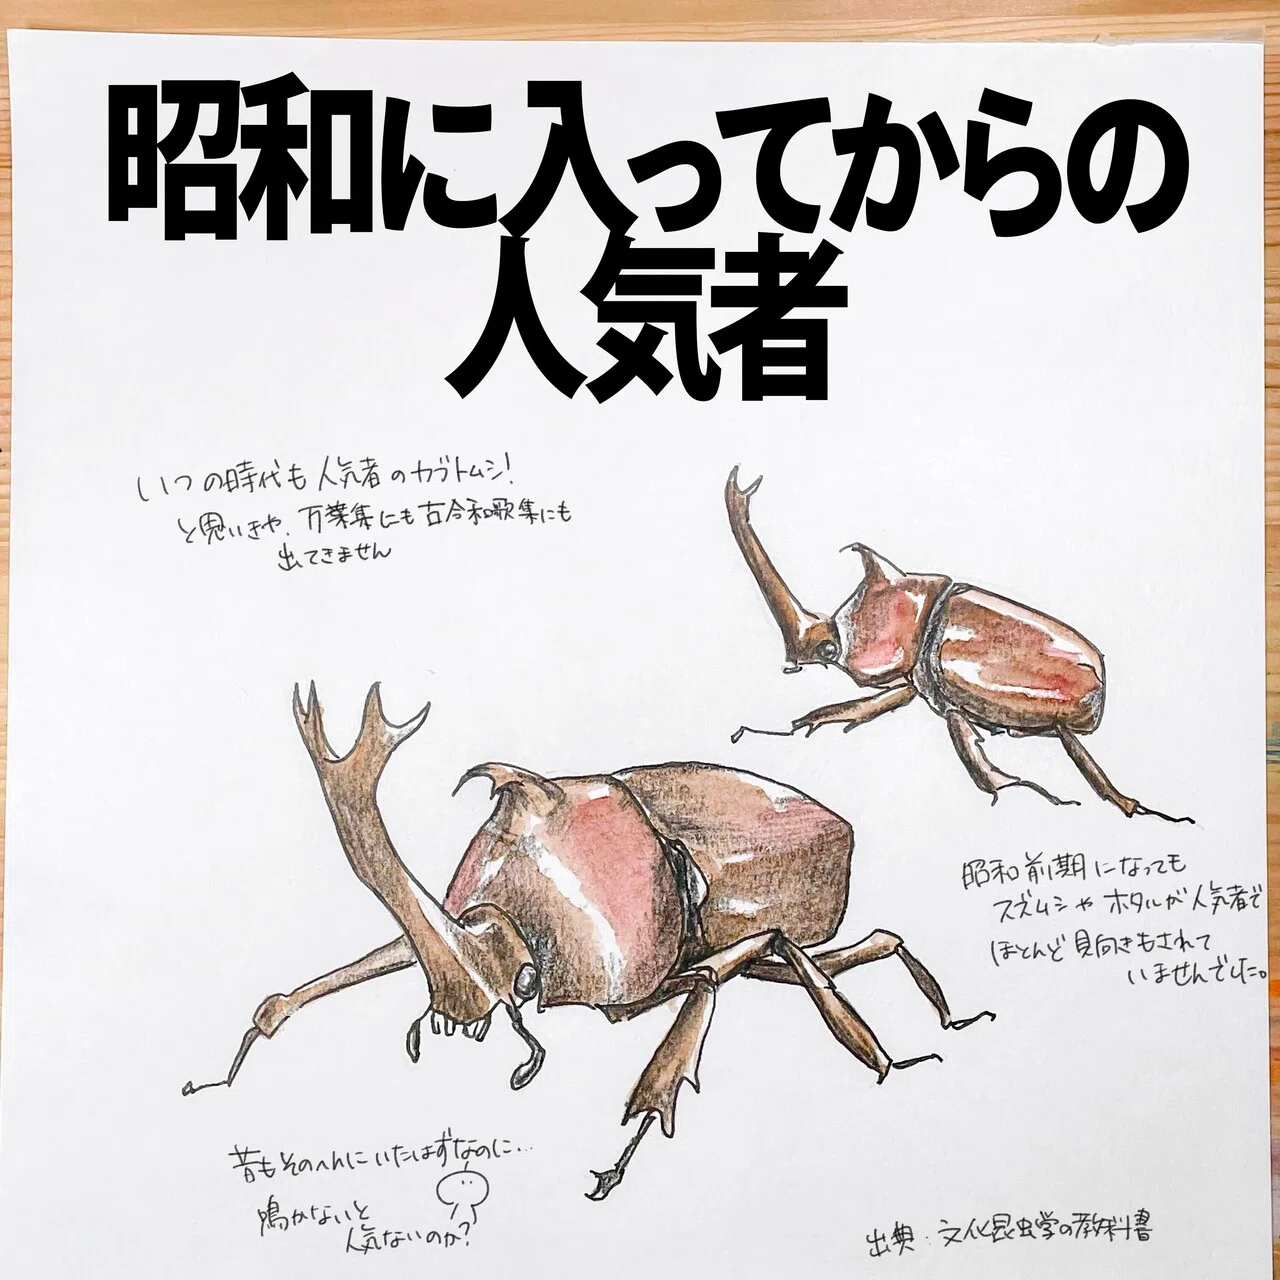 昭和に入ってからの
人気者
いつの時代も人気者のカブトムシ!
と思いきや、万葉集にも古今和歌集にも
出てきません
昭和前期になっても
スズムシやホタルが人気者で
ほとんど見向きもされて
いませんでした。
昔もそのへんにいたはずなのに…
鳴かないと
人気ないのか?
出典:文化昆虫学の教科書